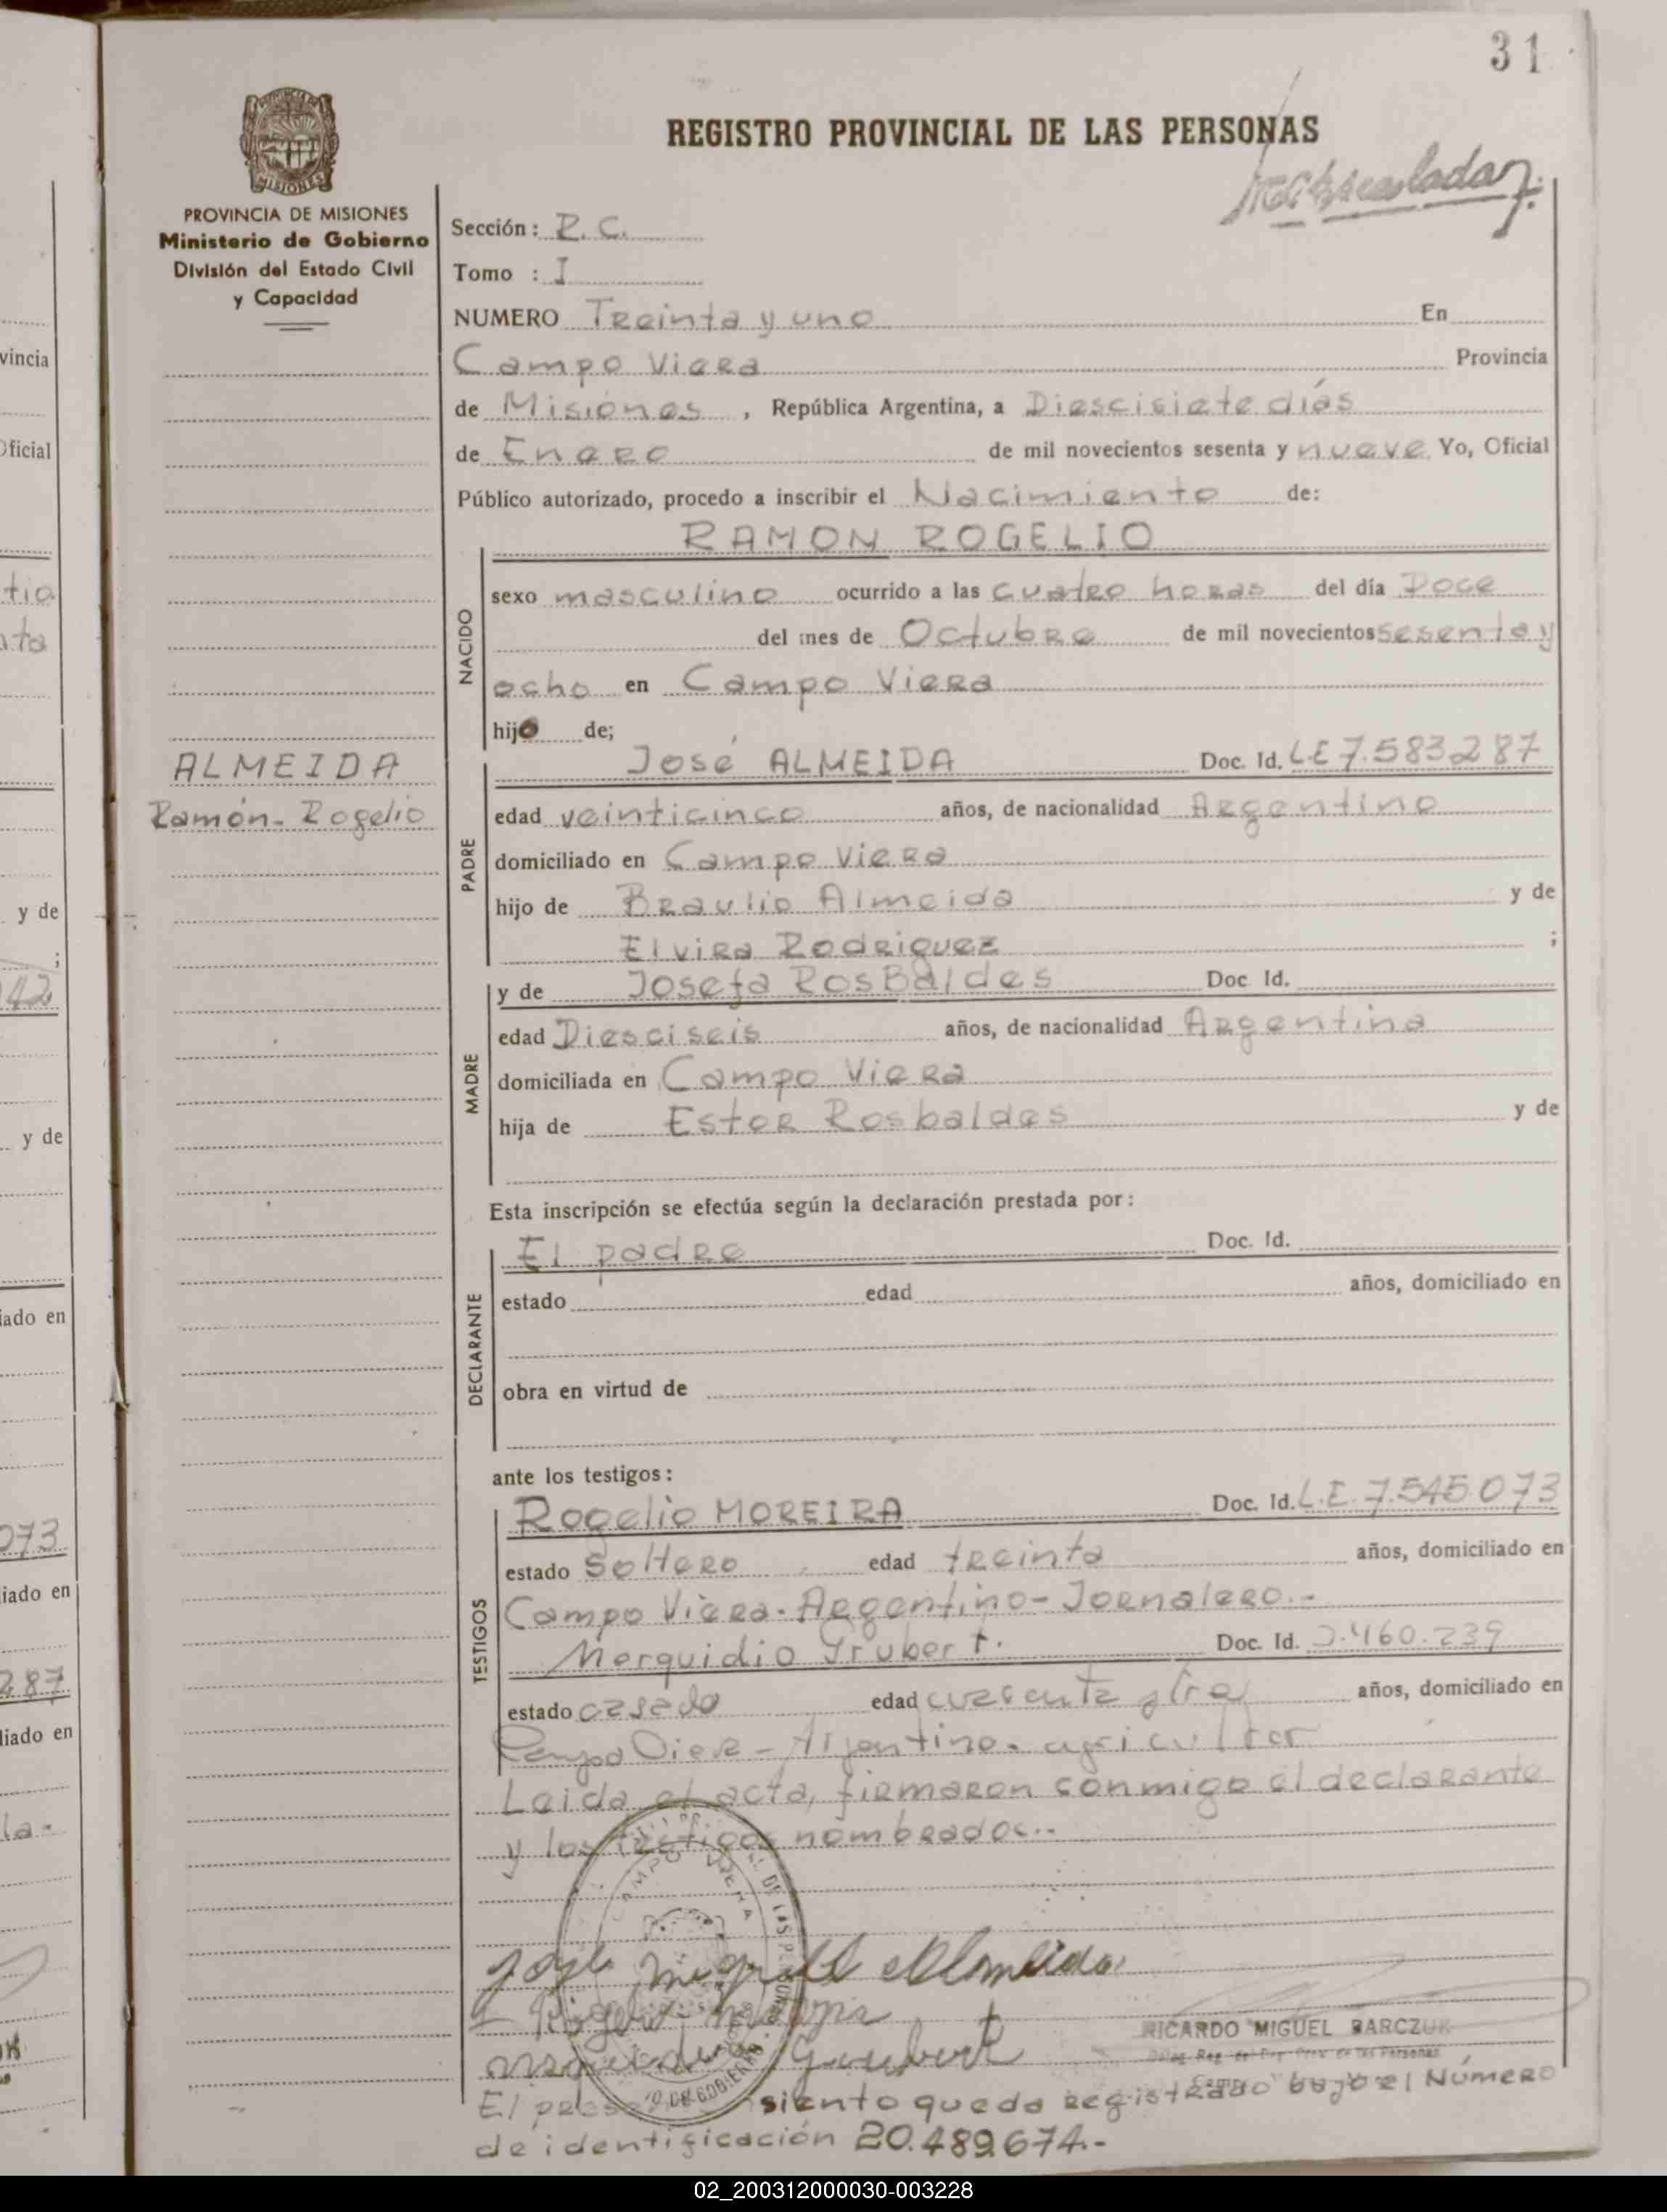 31
REGISTRO PROVINCIAL DE LAS PERSONAS
MISIONES
PROVINCIA DE MISIONES
Ministerio de Gobierno
División del Estado Civil
y Capacidad
Sección: R. C.
Tomo : I
NUMERO Treinta y uno En
Campo Viera Provincia
de Misiones, República Argentina, a Diescisiete días
de Enero de mil novecientos sesenta y nueve Yo, Oficial
Público autorizado, procedo a inscribir el Nacimiento de:
RAMON ROGELIO
NACIDO
sexo masculino ocurrido a las cuatro horas del día Doce
del mes de Octubre de mil novecientos sesenta y
ocho en Campo Viera
hijo de;
ALMEIDA
Ramón-Rogelio
PADRE
José ALMEIDA Doc. Id. LE 7.583287
edad veinticinco años, de nacionalidad Argentino
domiciliado en Campo Viera
hijo de Braulio Almeida y de
Elvira Rodriguez ;
MADRE
y de Josefa RosBaldes Doc. Id.
edad Diesciseis años, de nacionalidad Argentina
domiciliada en Campo Viera
hija de Ester Rosbaldes y de
Esta inscripción se efectúa según la declaración prestada por:
DECLARANTE
El padre Doc. Id.
estado edad años, domiciliado en
obra en virtud de
ante los testigos:
TESTIGOS
Rogelio MOREIRA Doc. Id. L.E. 7.545.073
estado Soltero edad treinta años, domiciliado en
Campo Viera-Argentino-Jornalero.-
Merquidio Doc. Id. 460.239
estado casado edad años, domiciliado en
agricultor
Leida el acta, firmaron conmigo el declarante
y los testigos nombrados.-
Almeida
RICARDO MIGUEL BARCZUK
El siento queda registrado bajo el Número
de identificación 20.489.674.-
vincia
Oficial
y de
42
y de
iado en
073
iado en
287
liado en
02_200312000030-003228